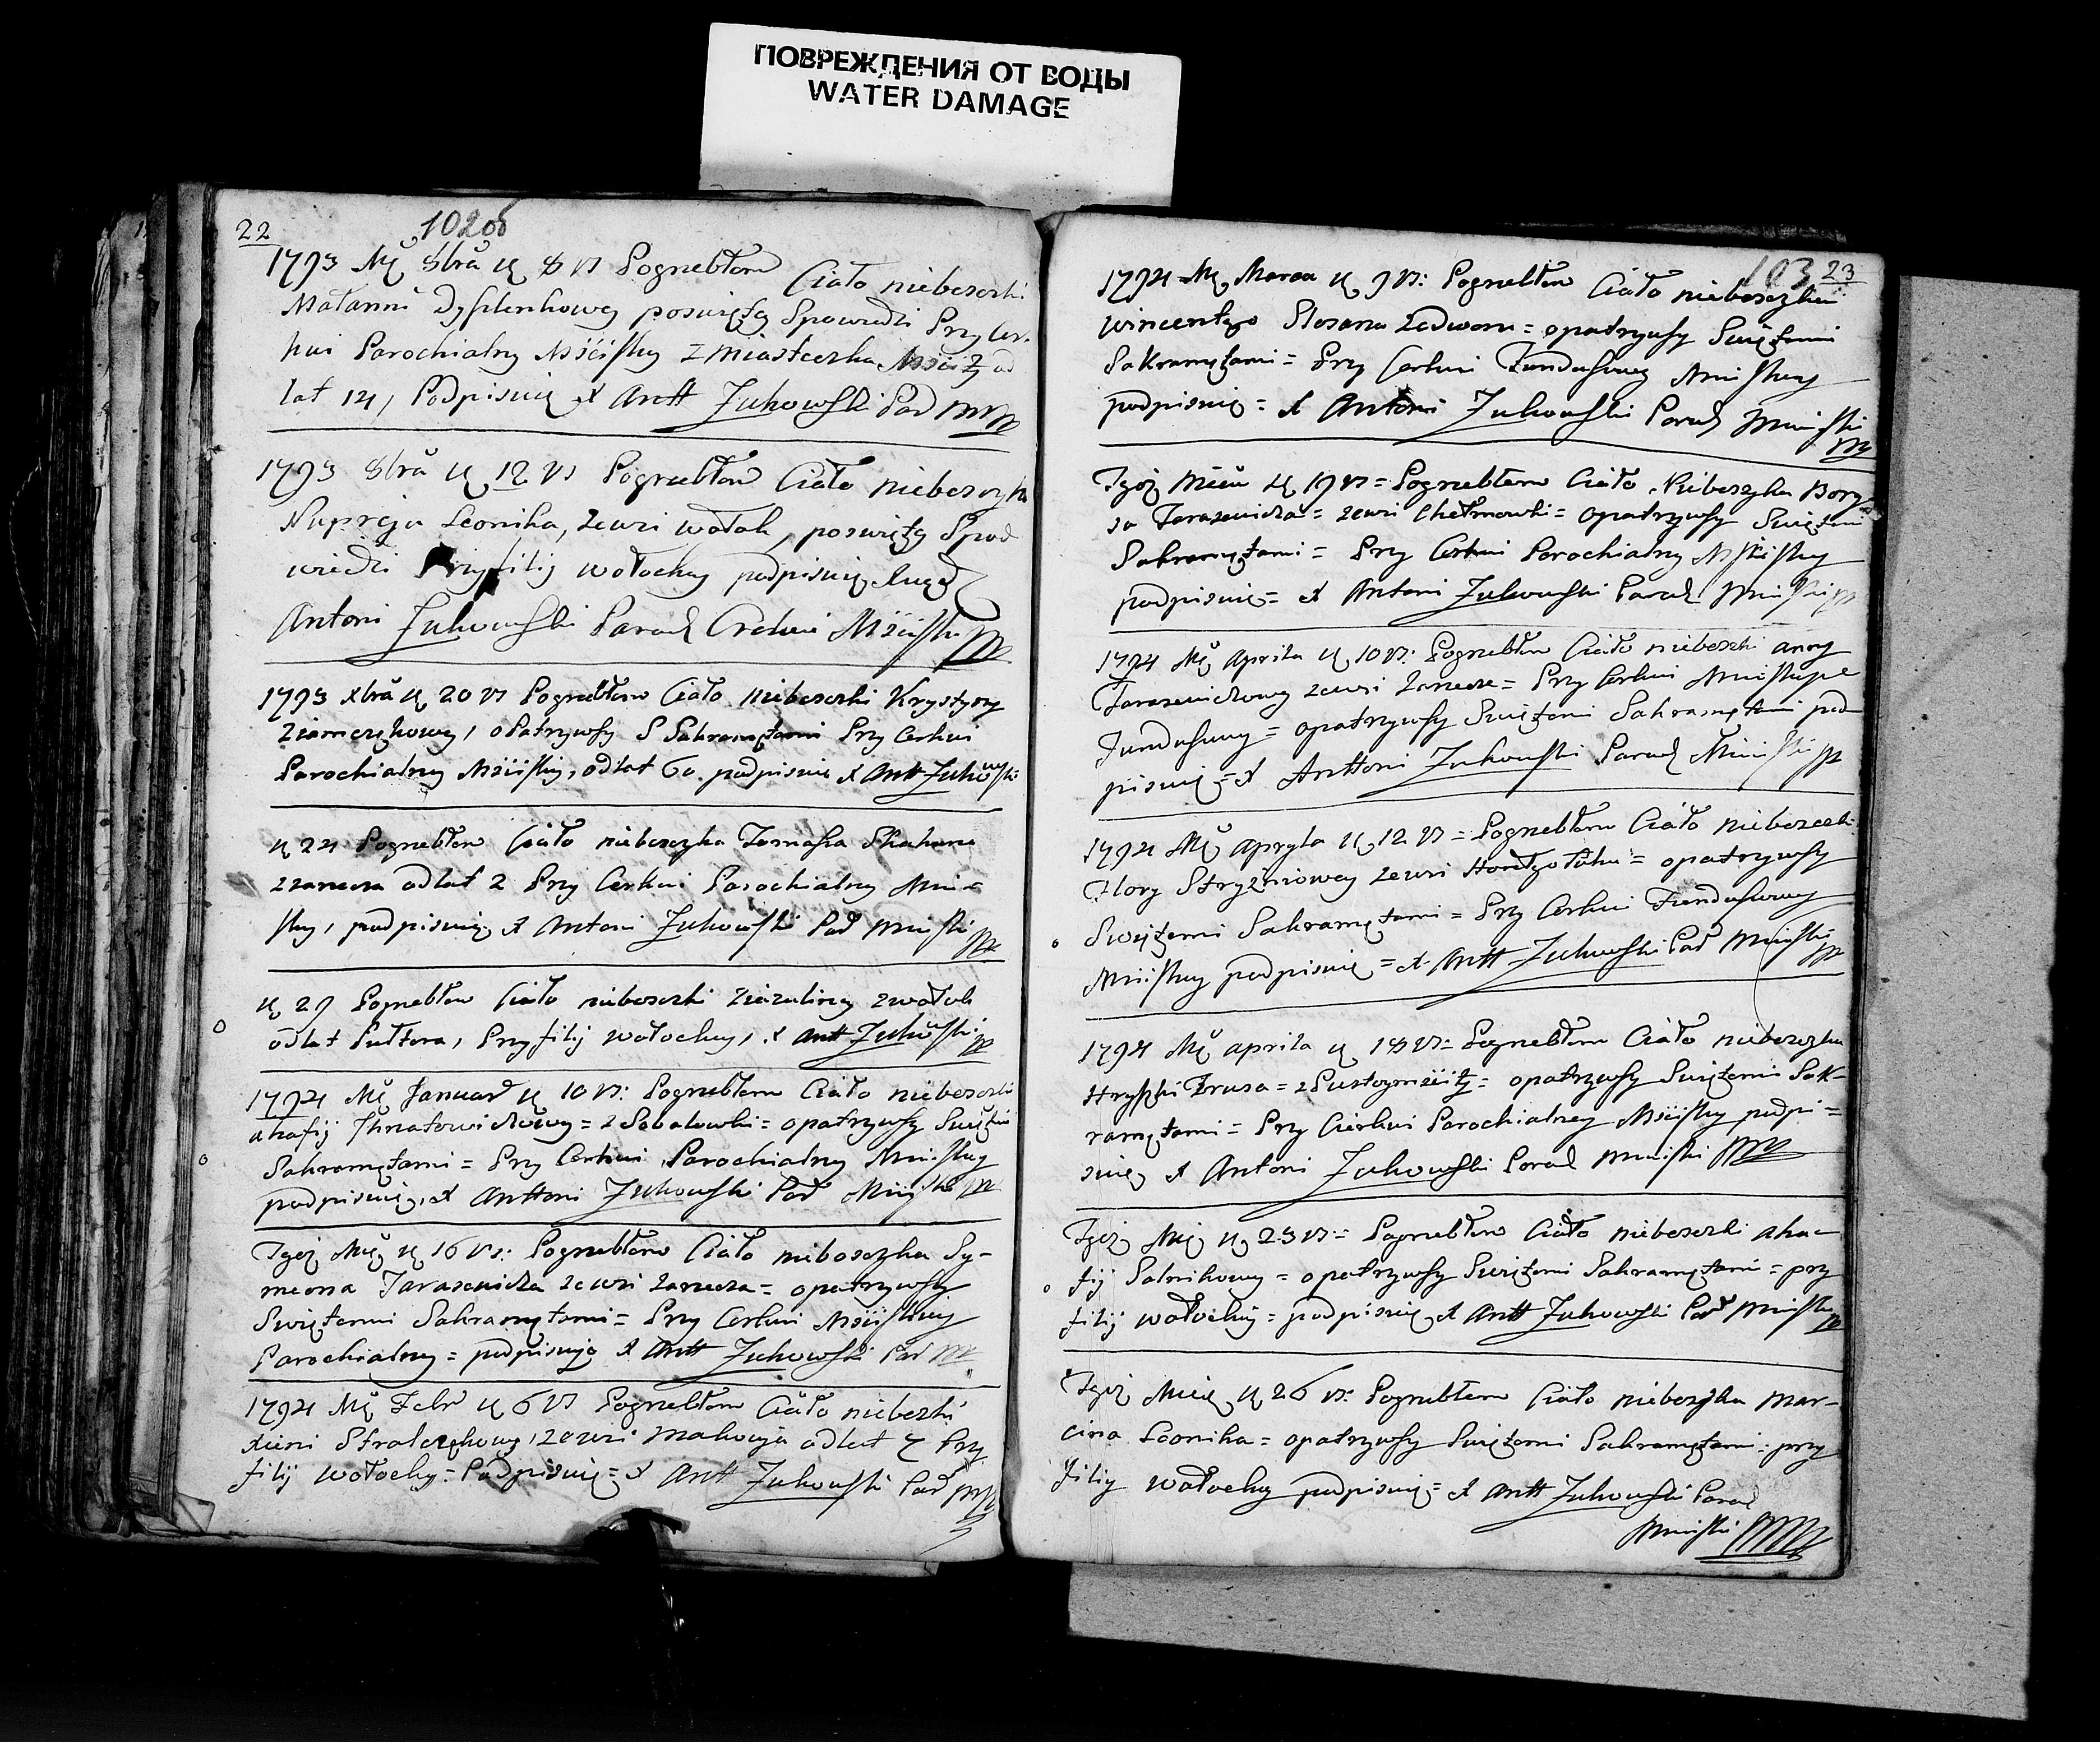 ПОВРЕЖДЕНИЯ ОТ ВОДЫ
WATER DAMAGE
22
102об
1793 Mę 8brã ų 8 vs Pogrzebłem Ciało nieboszki
Małanni poswiętey Spowiedzi Przy Cer-
kwi Parochialny Mściskey z Miasteczka Mściż od
lat 14, Podpisuię X Antt Żukowski Par
1793 8brã ų 12 vs Pogrzebłem Ciało nieboszyka
Nupreja Leonika, zewsi wołok, poswiętey Spo
wiedzi Przy filij wołockey podpisuię
Antoni Żukowski Paroch Cerkwi Msciski
1793 xbrã ų 20 vs Pogrzebłem Ciało nieboszki Krystyny
opatrzywszy S Sakramętami Przy Cerkwi
Parochialney Msciskiey, odlat 60. podpisuie X Antt Żukowski
ų 24 Pogrzebłem Ciało nieboszyka Tomasza Skakuna
zzarecza odlat 2 Przy Cerkwi Parochialney Mści-
skey, podpisuię X Antoni Żukowski Par Mściski
ų 29 Pogrzebłem Ciało nieboszki zwołok
odlat Pułtora, Przy filij wołockey, X Antt Żukowski
1794 Mę Januar ų 10 vs: Pogrzebłem Ciało nieboszki
Ahafij Ihnatowiczowey = z Sobolowki = opatrzywszy Swiętemi
Sakramętami = Przy Cerkwi Parochialney Mściskey
podpisuię, X Anttoni Żukowski Par Mściski
Tegoż Mcę ų 16 vs: Pogrzebłem Ciało nieboszczyka Sy-
meona Tarasewicza zewsi zarecza = opatrzywszy
Swiętemi Sakramętami = Przy Cerkwi Mściskiey
Parochialney = podpisuję X Antt Żukowski Par
1794 Mę Febr ų 6 vs Pogrzebłem Ciało nieboszki
Xieni zewsi Makowja odlat 7 Przy
filij wołockey = Podpisuię = X Antt Żukowski Par
103 23
1794 Mę Marca ų 9 vs: Pogrzebłem Ciało nieboszczyka
wincentego Slosara zedworu = opatrzywszy Swiętemi
Sakramętami = Przy Cerkwi Funduszowey Mściskey
podpisuię = X Antoni Żukowski Paroch Mściski
Tegoż Mcã ų 19 vs = Pogrzebłem Ciało Nieboszyka Bory-
sa Tarasewicza = zewsi Chełmowki = opatrzywszy Swiętemi
Sakramętami = Przy Cerkwi Parochialney Mściskey
podpisuie = X Antoni Żukowski Paroch Mściski
1794 Mę Aprila ų 10 vs: Pogrzebłem Ciało nieboszki anny
Tarasewiczowey zewsi zarecze = Przy Cerkwi Mściskiey
Funduszowey = opatrzywszy Swiętemi Sakramętami pod
pisuię = X Anttoni Żukowski Paroch Mściski
1794 Mę Apryla ų 12 vs = Pogrzebłem Ciało nieboszcz
Stryżniowey zewsi = opatrzywszy
Swiętemi Sakramętami = Przy Cerkwi Funduszowey
Mściskey podpisuię = X Antt Żukowski Par Mściski
1794 Mę aprila ų 18 vs = Pogrzebłem Ciało nieboszczyka
Hryszki = z = opatrzywszy Swiętemi Sak-
ramętami = Przy Cierkwi Parochialney Mściskey podpi =
suię X Antoni Żukowski Paroch Mściski
Tegoż Mcę ų 23 vs = Pogrzebłem Ciało nieboszczki aha-
fij Salnikowey = opatrzywszy Swiętemi Sakramętami = przy
filij wołockiey = podpisuię X Antt Żukowski Par Mściski
Tegoż Mcię ų 26 vs: Pogrzebłem Ciało nieboszczyka Mar-
cina Leonika = opatrzywszy Swiętemi Sakramętami = przy
filiy wołockey podpisuię = X Antt Żukowski Paroch
Mściski